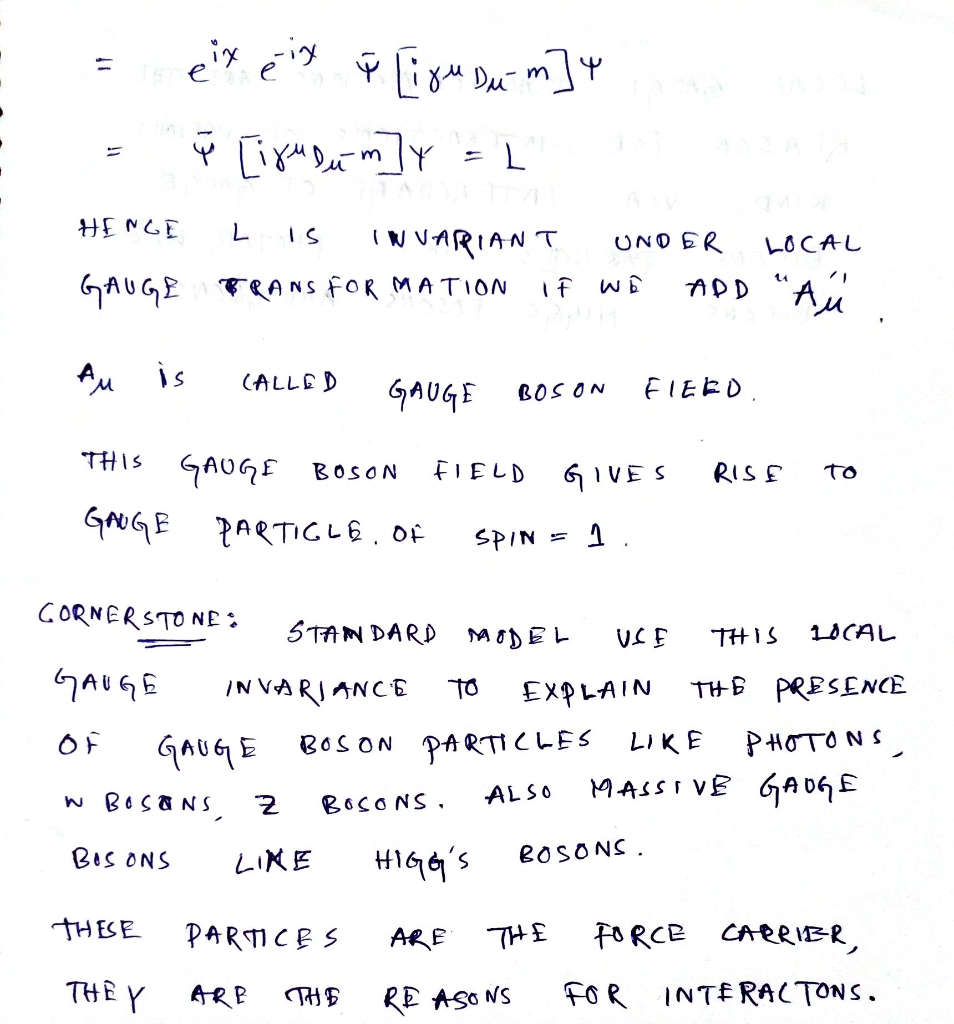 = e^{iχ} e^{-iχ} ψ̄ [iγ^μ D_μ - m]ψ
= ψ̄ [iγ^μ D_μ - m]ψ = L
HENCE L IS INVARIANT UNDER LOCAL
GAUGE TRANSFORMATION IF WE ADD "A_μ".
A_μ is CALLED GAUGE BOSON FIELD.
THIS GAUGE BOSON FIELD GIVES RISE TO
GAUGE PARTICLE. OF SPIN = 1.
CORNERSTONE: STANDARD MODEL USE THIS LOCAL
GAUGE INVARIANCE TO EXPLAIN THE PRESENCE
OF GAUGE BOSON PARTICLES LIKE PHOTONS,
W BOSONS, Z BOSONS. ALSO MASSIVE GAUGE
BOSONS LIKE HIGG'S BOSONS.
THESE PARTICES ARE THE FORCE CARRIER,
THEY ARE THE REASONS FOR INTERACTONS.